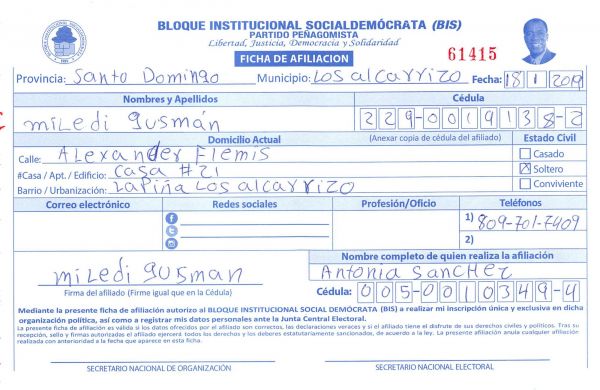 BLOQUE INSTITUCIONAL SOCIALDEMÓCRATA (BIS)
PARTIDO PEÑAGOMISTA
Libertad, Justicia, Democracia y Solidaridad
FICHA DE AFILIACION
61415
Provincia: Santo Domingo Municipio: Los alcarrizo Fecha: 18 1 2019
Nombres y Apellidos
Cédula
miLeDi gusmán
229-0019138-2
Domicilio Actual
(Anexar copia de cédula del afiliado)
Estado Civil
Calle: ALexander Flemis
Casado
#Casa / Apt. / Edificio: Casa #21
Soltero
Barrio / Urbanización: LaPiña Los alcarrizo
Conviviente
Correo electrónico
Redes sociales
Profesión/Oficio
Teléfonos
1) 809-701-7409
2)
miLeDi gusman
Firma del afiliado (Firme igual que en la Cédula)
Nombre completo de quien realiza la afiliación
Antonia Sanchez
Cédula: 005-0010349-4
Mediante la presente ficha de afiliación autorizo al BLOQUE INSTITUCIONAL SOCIAL DEMÓCRATA (BIS) a realizar mi inscripción única y exclusiva en dicha
organización política, así como a registrar mis datos personales ante la Junta Central Electoral.
La presente ficha de afiliación es válida si los datos ofrecidos por el afiliado son correctos, las declaraciones veraces y si el afiliado tiene el disfrute de sus derechos civiles y políticos. Tras su
recepción, sello y firmas autorizadas el afiliado ejercerá todos los derechos y los deberes estatutariamente sancionados, de acuerdo a la ley. La presente afiliación anula cualquier afiliación
realizada con anterioridad a la fecha que aparece en esta ficha.
SECRETARIO NACIONAL DE ORGANIZACIÓN
SECRETARIO NACIONAL ELECTORAL